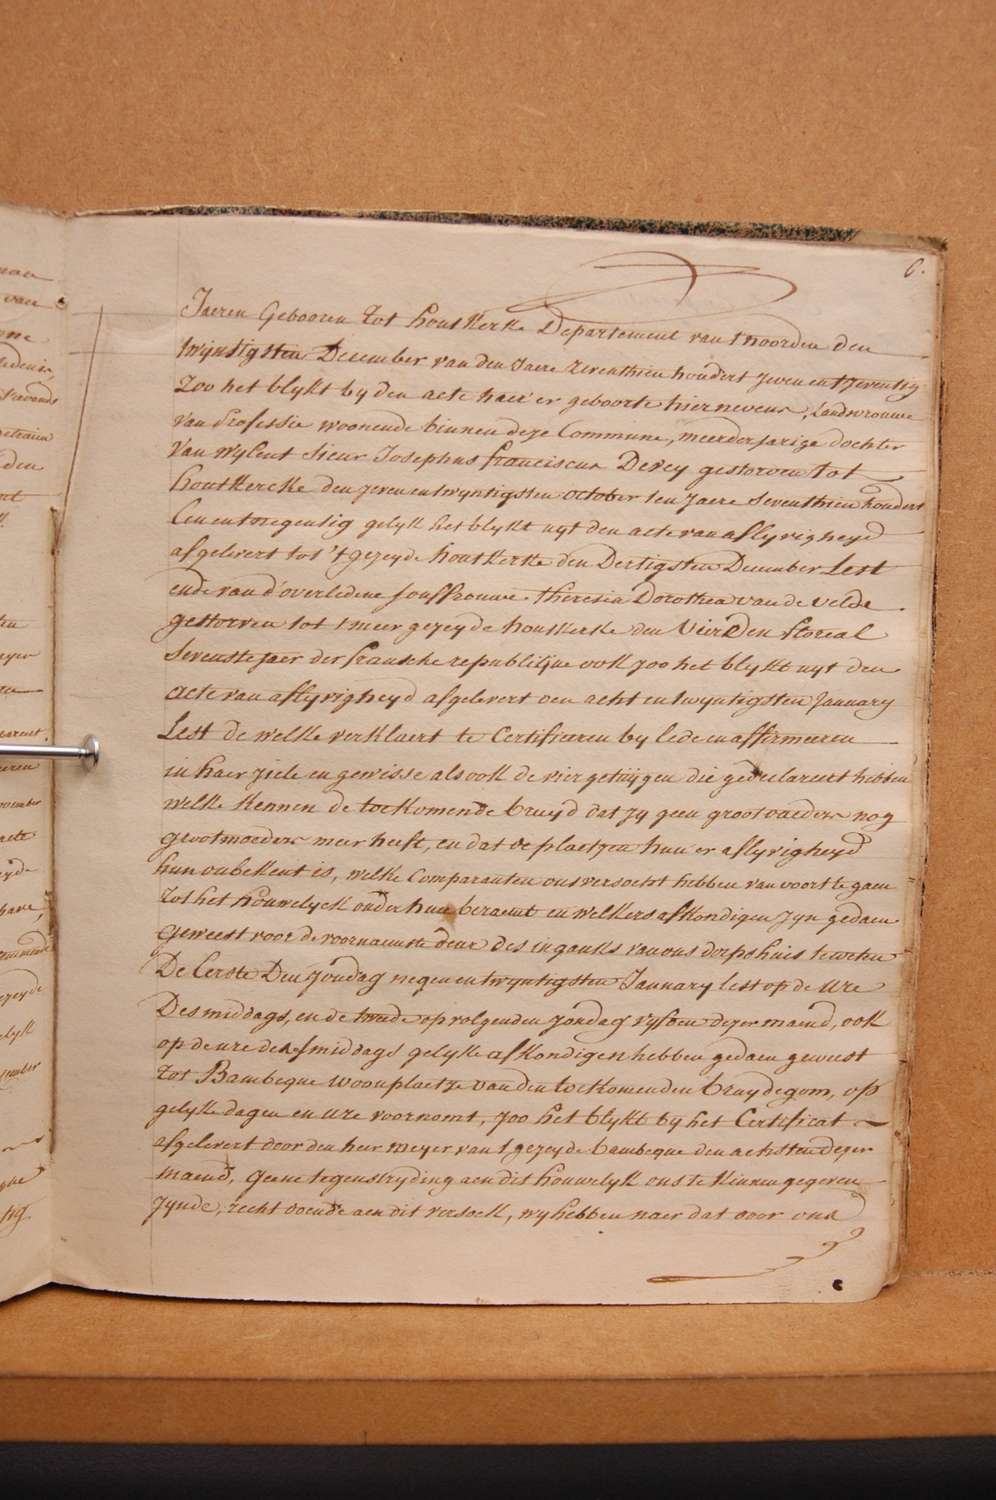 6.
Jaeren Gebooren tot houtkerke Departement van t noorden den
twijntigsten December van den Jaere zeventhien hondert zeven en tzeventig
zoo het blykt by den acte haer er geboorte hiernevens, Landvrouwe
van Professie woonende binnen deze Commune, meerderjarige dochter
van wylent sieur Josephus franciscus Devey gestorven tot
houtkercke den zeven entwyntigsten october ten jaere seventhien hondert
een en tnegentig gelyk het blykt uyt den acte van aflyvigheyd
afgelevert tot 't gezeyde houtkerke den Dertigsten December Lest
ende van d'overledene jouffrouwe theresia Dorothea van de velde
gestorven tot t meergezeyde houtkerke den Vierden floreal
sevenste jaer der fransche republijue ook zoo het blykt uyt den
acte van aflyvigheyd afgelevert den acht en twyntigsten January
Lest de welke verklaert te Certifieeren by lede en affirmeeren
in haer ziele en gewisse als ook de vier getuijgen die gedeclareert hebben
welke kennen de toekomende bruyd dat zy geen grootvaeders nog
grootmoeders meer heeft, en dat de plaetzen hun er aflyvigheyd
hun onbekent is, welke Comparanten ons versocht hebben van voort te gaen
tot het houwelyck onder hun beraemt en welkers afkondigen zyn gedaen
geweest voor de voornaemste deur des ingauks van ons dorpshuis te weten
De Eerste Den zondag negen en twyntigsten January lest op de ure
Des middags, en de twede op volgenden zondag vyfden dezer maend, ook
op de ure des smiddags gelyke afkondigen hebben gedaen geweest
tot Bambeque woonplaetze van den toekomenden bruydegom, op
gelyke dagen en ure voornomt, zoo het blykt by het Certificat
afgelevert door den heer meyer van t gezeyde bambeque den achsten dezer
maend, geene tegenstryding aen dit houwelyk ons te kennen gegeven
zynde, recht doende aen dit versoek, wy hebben naer dat door ons